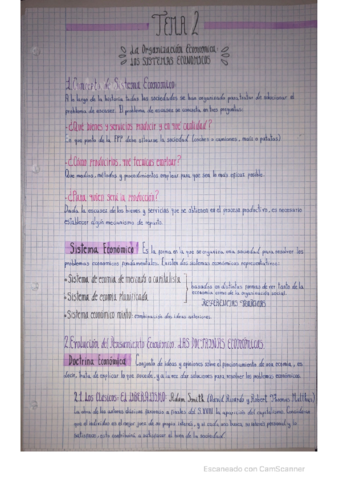 TEMA 2
La Organización Económica:
LOS SISTEMAS ECONÓMICOS
1. Concepto de Sistema Económico
A lo largo de la historia todas las sociedades se han organizado para tratar de solucionar el
problema de escasez. El problema de escasez se concreta en tres preguntas:
-¿Qué bienes y servicios producir y en qué cantidad?
de la FPP debe situarse la sociedad
-¿Cómo producirlos, qué técnicas emplear?
Qué medios, métodos y procedimientos emplear para que sea lo más eficaz posible.
-¿Para quién será la producción?
Dada la escasez de los bienes y servicios que se obtienen en el proceso productivo, es necesario
establecer algún mecanismo de reparto.
Sistema Económico: Es la forma en la que se organiza una sociedad para resolver los
problemas económicos fundamentales. Existen dos sistemas económicos representativos:
-Sistema de economía de mercado o capitalista
-Sistema de economía planificada
basados en distintas formas de ver tanto de la
economía como de la organización social.
-Sistema económico mixto: combinación de los anteriores.
2. Evolución del Pensamiento Económico: LAS DOCTRINAS ECONÓMICAS
Doctrina Económica: Conjunto de ideas y opiniones sobre el funcionamiento de una economía, es
decir, trata de explicar lo que sucede, y a la vez dar soluciones para resolver los problemas económicos.
2.1. Los Clásicos: EL LIBERALISMO: Adam Smith (David Ricardo y Robert Thomas Malthus)
La obra de los autores clásicos a partir del S.XVIII la aparición del capitalismo. Consideran
que el individuo es el mejor juez de su propio interés, y si cada uno busca su interés personal y su
el bien de la sociedad.
Escaneado con CamScanner